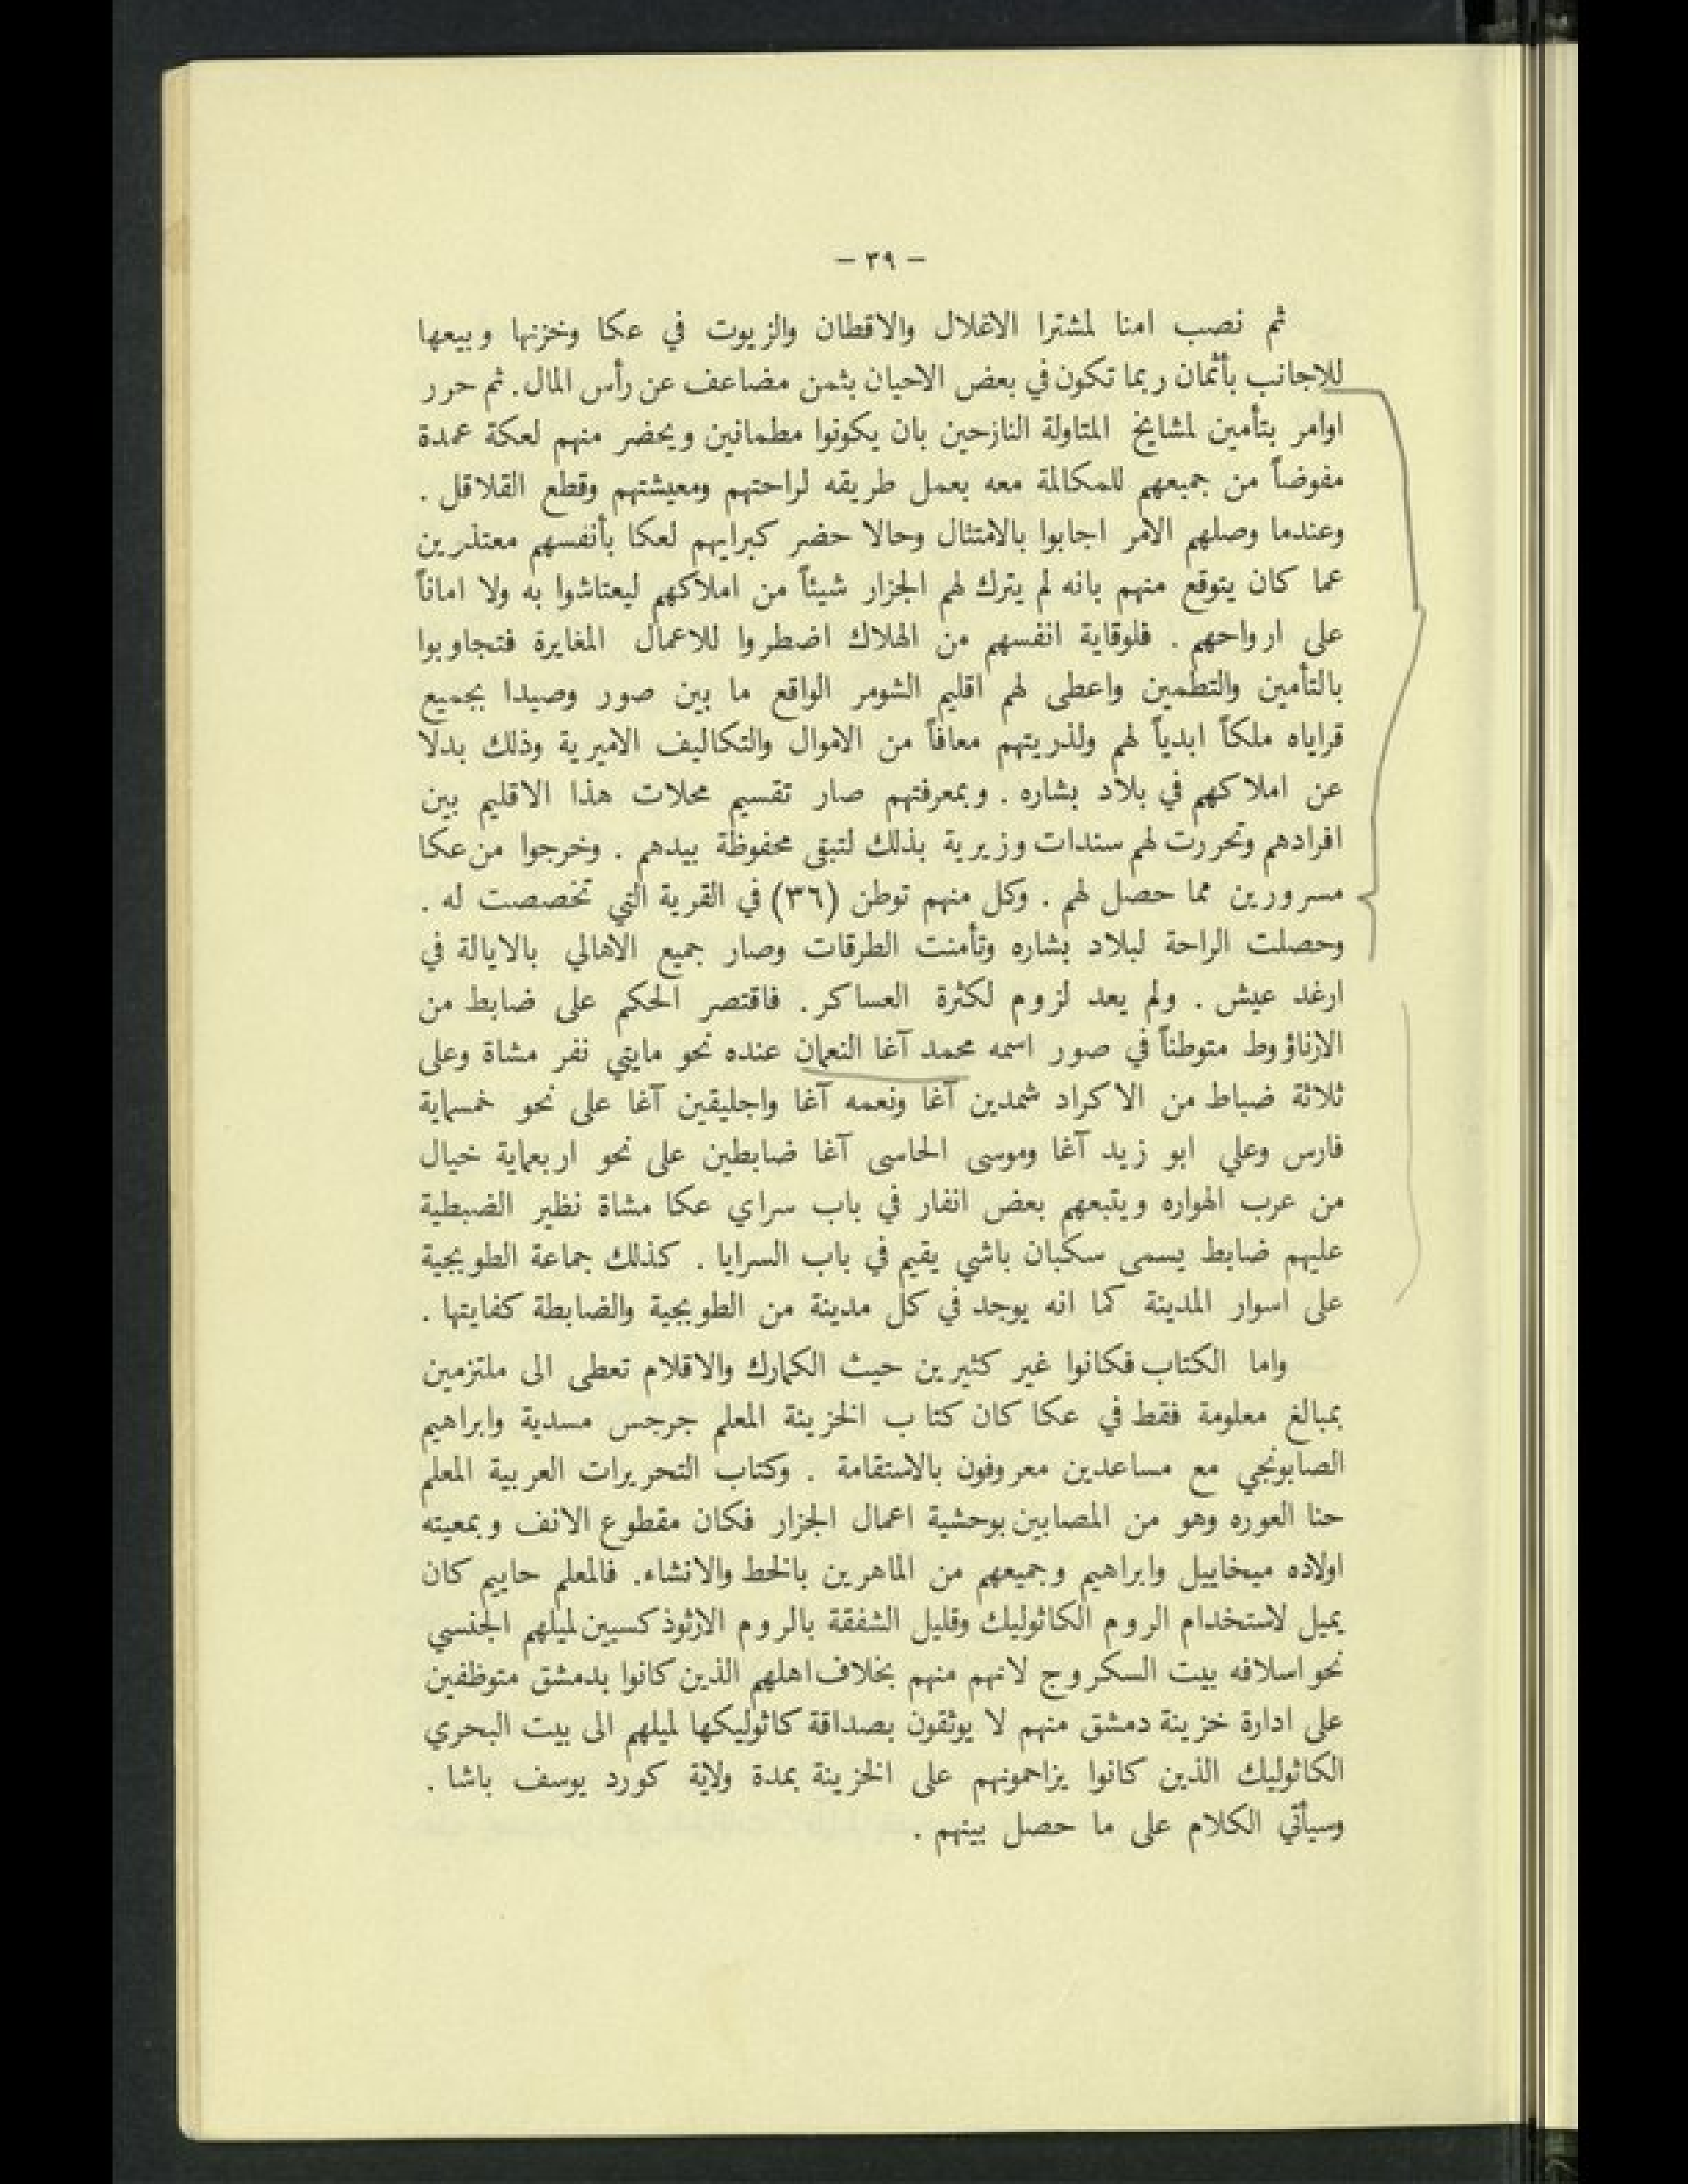 — ٣٩ —
ثم نصب امنا لمشترا الاغلال والاقطان والزيوت في عكا وخزنها وبيعها
للاجانب بأثمان ربما تكون في بعض الاحيان بثمن مضاعف عن رأس المال. ثم حرر
اوامر بتأمين لمشايخ المتاولة النازحين بان يكونوا مطمانين ويحضر منهم لعكة عمدة
مفوضاً من جميعهم للمكالمة معه بعمل طريقه لراحتهم ومعيشتهم وقطع القلاقل .
وعندما وصلهم الامر اجابوا بالامتثال وحالا حضر كبرايهم لعكا بأنفسهم معتذرين
عما كان يتوقع منهم بانه لم يترك لهم الجزار شيئاً من املاكهم ليعتاشوا به ولا اماناً
على ارواحهم . فلوقاية انفسهم من الهلاك اضطروا للاعمال المغايرة فتجاوبوا
بالتأمين والتطمين واعطى لهم اقليم الشومر الواقع ما بين صور وصيدا بجميع
قراياه ملكاً ابدياً لهم ولذريتهم معافاً من الاموال والتكاليف الاميرية وذلك بدلا
عن املاكهم في بلاد بشاره . وبمعرفتهم صار تقسيم محلات هذا الاقليم بين
افرادهم وتحررت لهم سندات وزيرية بذلك لتبقى محفوظة بيدهم . وخرجوا من عكا
مسرورين مما حصل لهم . وكل منهم توطن (٣٦) في القرية التي تخصصت له .
وحصلت الراحة لبلاد بشاره وتأمنت الطرقات وصار جميع الاهالي بالايالة في
ارغد عيش . ولم يعد لزوم لكثرة العساكر. فاقتصر الحكم على ضابط من
الارناؤوط متوطناً في صور اسمه محمد آغا النعمان عنده نحو مايتي نفر مشاة وعلى
ثلاثة ضباط من الاكراد شمدين آغا ونعمه آغا واجليقين آغا على نحو خمسماية
فارس وعلي ابو زيد آغا وموسى الحاسى آغا ضابطين على نحو اربعماية خيال
من عرب الهواره ويتبعهم بعض انفار في باب سراي عكا مشاة نظير الضبطية
عليهم ضابط يسمى سكبان باشي يقيم في باب السرايا . كذلك جماعة الطوبجية
على اسوار المدينة كما انه يوجد في كل مدينة من الطوبجية والضابطة كفايتها .
واما الكتاب فكانوا غير كثيرين حيث الكمارك والاقلام تعطى الى ملتزمين
بمبالغ معلومة فقط في عكا كان كتاب الخزينة المعلم جرجس مسدية وابراهيم
الصابونجي مع مساعدين معروفون بالاستقامة . وكتاب التحريرات العربية المعلم
حنا العوره وهو من المصابين بوحشية اعمال الجزار فكان مقطوع الانف وبمعيته
اولاده ميخاييل وابراهيم وجميعهم من الماهرين بالخط والانشاء. فالمعلم حاييم كان
يميل لاستخدام الروم الكاثوليك وقليل الشفقة بالروم الارثوذكسيين لميلهم الجنسي
نحو اسلافه بيت السكروج لانهم منهم بخلاف اهلهم الذين كانوا بدمشق متوظفين
على ادارة خزينة دمشق منهم لا يوثقون بصداقة كاثوليكها لميلهم الى بيت البحري
الكاثوليك الذين كانوا يزاحمونهم على الخزينة بمدة ولاية كورد يوسف باشا .
وسيأتي الكلام على ما حصل بينهم .